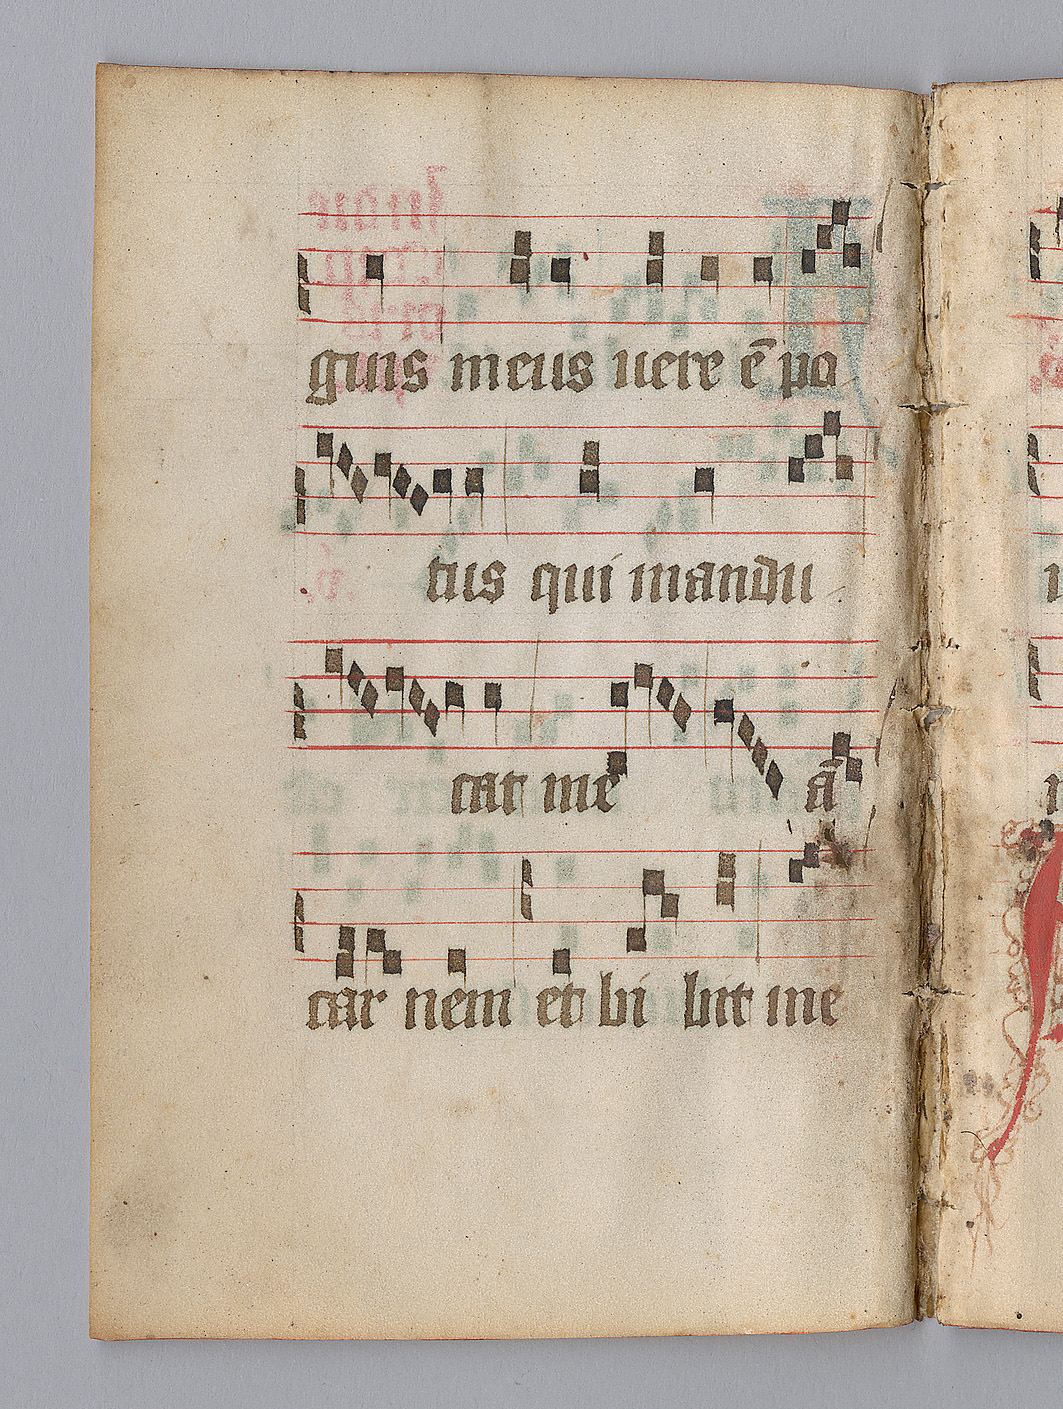 guis meus uere ē po
tus qui mandu
cat me ā
car nem et bi bit me